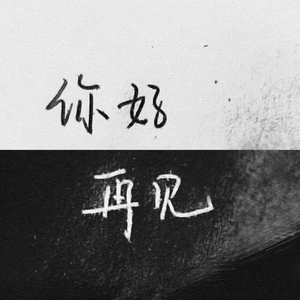 你好
再见